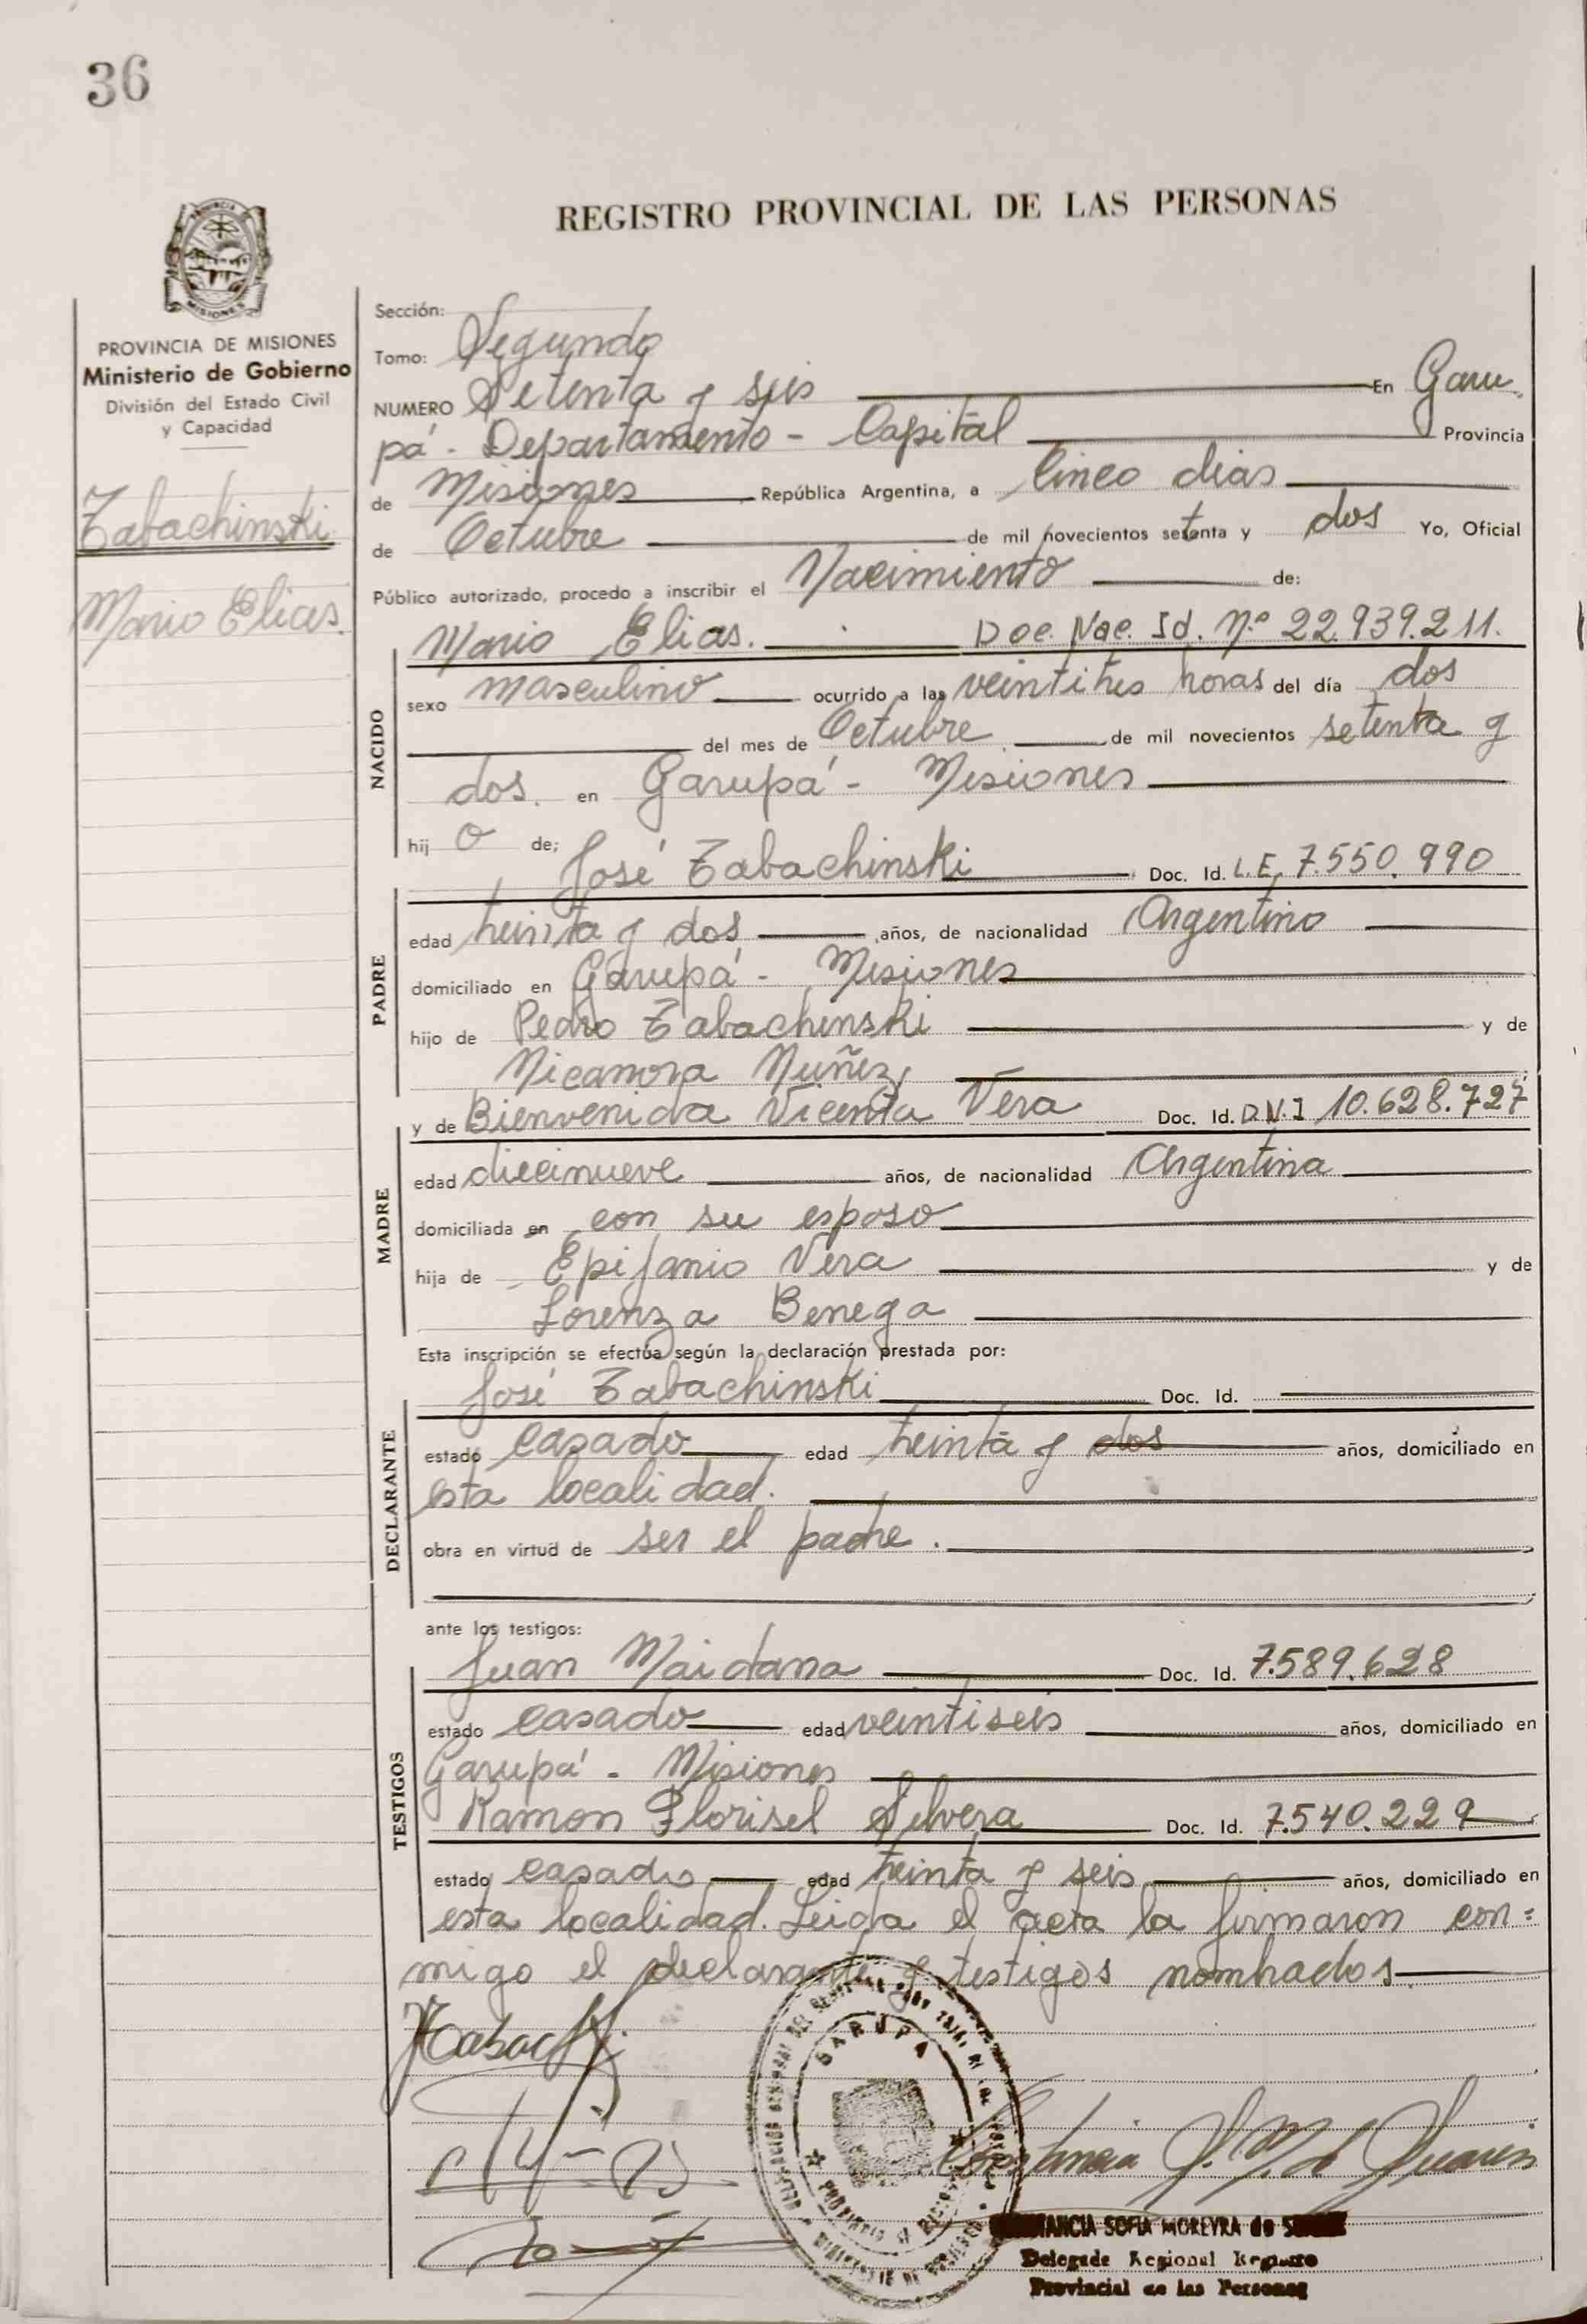 36
REGISTRO PROVINCIAL DE LAS PERSONAS
PROVINCIA DE MISIONES
Ministerio de Gobierno
División del Estado Civil
y Capacidad
Tabachinski
Mario Elias.
Sección:
Tomo: Segundo
NUMERO Setenta y seis En Garu-
pá - Departamento - Capital Provincia
de Misiones República Argentina, a Cinco dias
de Octubre de mil novecientos setenta y dos Yo, Oficial
Público autorizado, procedo a inscribir el Nacimiento de:
Mario Elias. Doc. Nac. Id. Nº 22.939.211.
NACIDO
sexo masculino ocurrido a las veintitres horas del día dos
del mes de Octubre de mil novecientos setenta y
dos. en Garupá - Misiones
hijo de; José Tabachinski Doc. Id. L.E. 7.550.990
PADRE
edad treinta y dos años, de nacionalidad Argentino
domiciliado en Garupá - Misiones
hijo de Pedro Tabachinski y de
Nicanora Nuñez,
y de Bienvenida Vicenta Vera Doc. Id. D.N.I 10.628.727
MADRE
edad diecinueve años, de nacionalidad Argentina
domiciliada en con su esposo
hija de Epifanio Vera y de
Lorenza Benega
Esta inscripción se efectúa según la declaración prestada por:
José Tabachinski Doc. Id.
DECLARANTE
estado casado edad treinta y dos años, domiciliado en
esta localidad.
obra en virtud de ser el padre.
ante los testigos:
Juan Maidana Doc. Id. 7.589.628
TESTIGOS
estado casado edad veintiseis años, domiciliado en
Garupá - Misiones
Ramon Florisel Silvera Doc. Id. 7.540.229
estado casado edad treinta y seis años, domiciliado en
esta localidad. Leida el acta la firmaron con=
migo el declarante y testigos nombrados
GARUPA
SOFIA MOREYRA de
Delegada Regional Registro
Provincial de las Personas